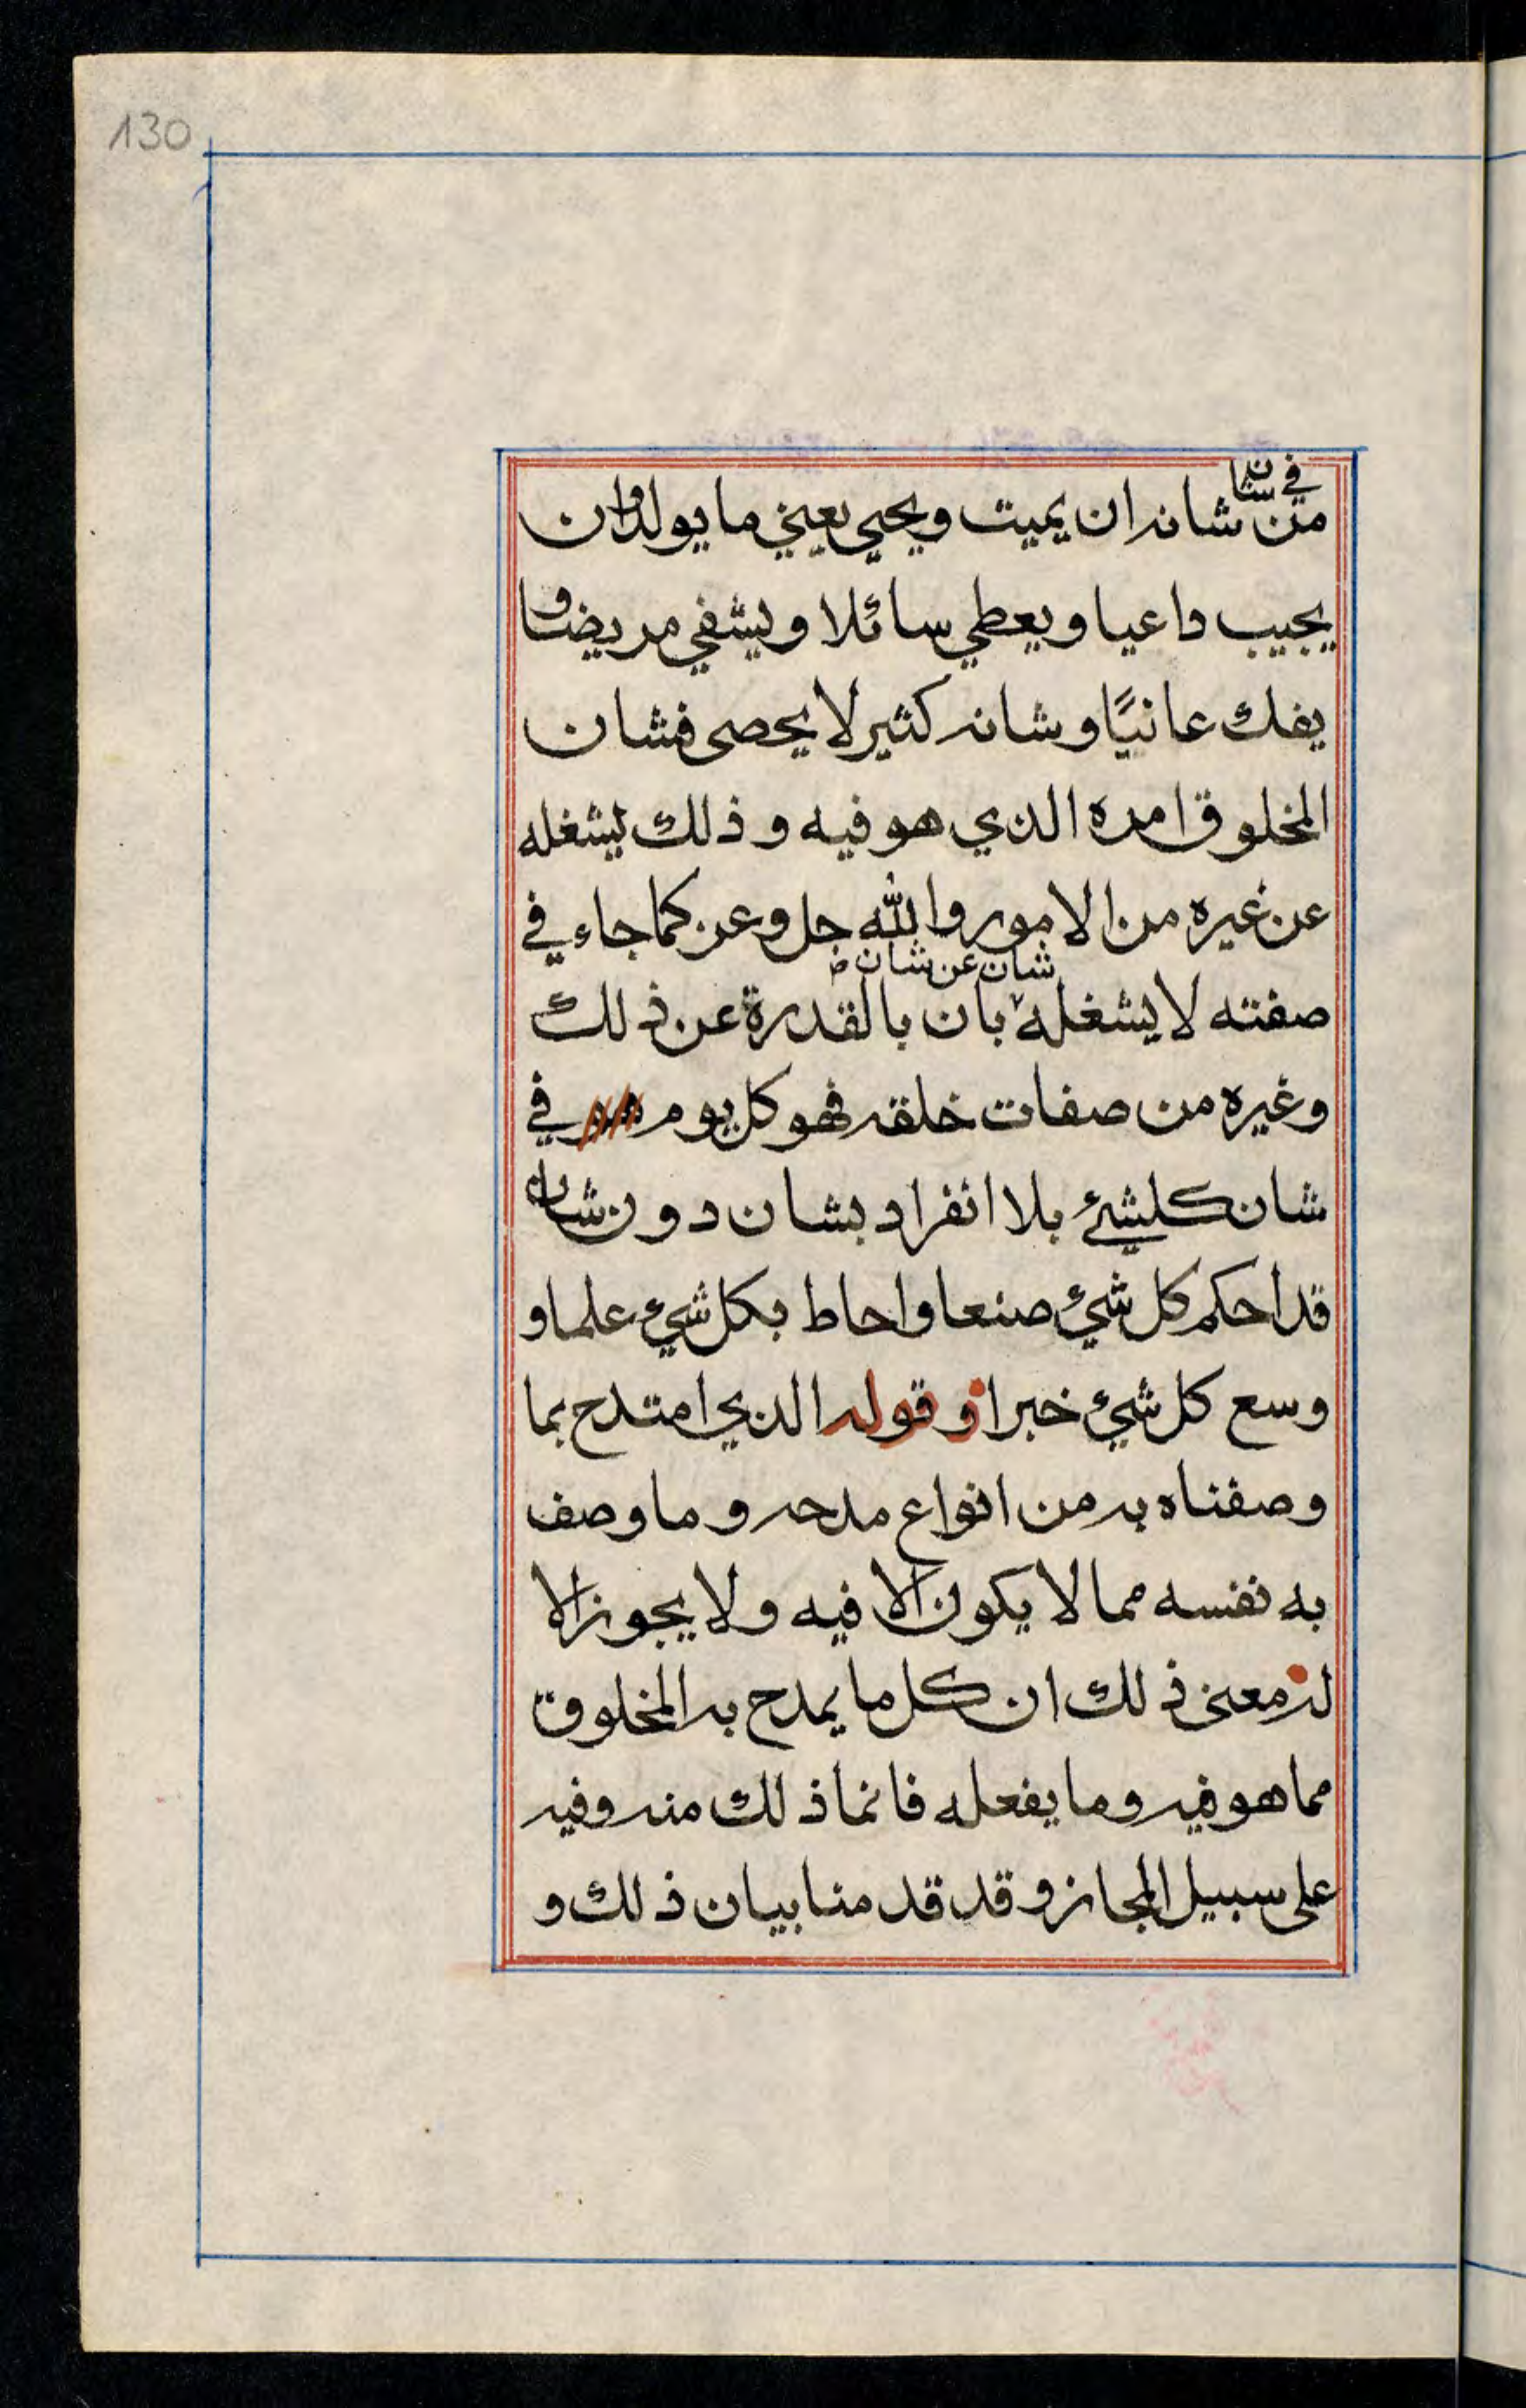 130
في شان
من شانه ان يميت ويحيي يعني ما يولد وان
يجيب داعيا ويعطي سائلا ويشفي مريضا و
يفك عانيًا وشانه كثير لا يحصى فشان
المخلوق امره الذي هو فيه وذلك يشغله
عن غيره من الامور والله جل وعز كما جاء في
شان عن شان
صفته لا يشغله بان بالقدرة عن ذلك
وغيره من صفات خلقه فهو كل يوم هو في
شان كلشئ بلا انفراد بشان دون شان
قد احكم كل شيء صنعا واحاط بكل شيء علما و
وسع كل شيء خبرا و قوله الذي امتدح بما
وصفناه به من انواع مدحه وما وصف
به نفسه مما لا يكون الا فيه ولا يجوز الا
له معنى ذلك ان كل ما يمدح به المخلوق
مما هو فيه وما يفعله فانما ذلك منه وفيه
على سبيل المجاز وقد قدمنا بيان ذلك و